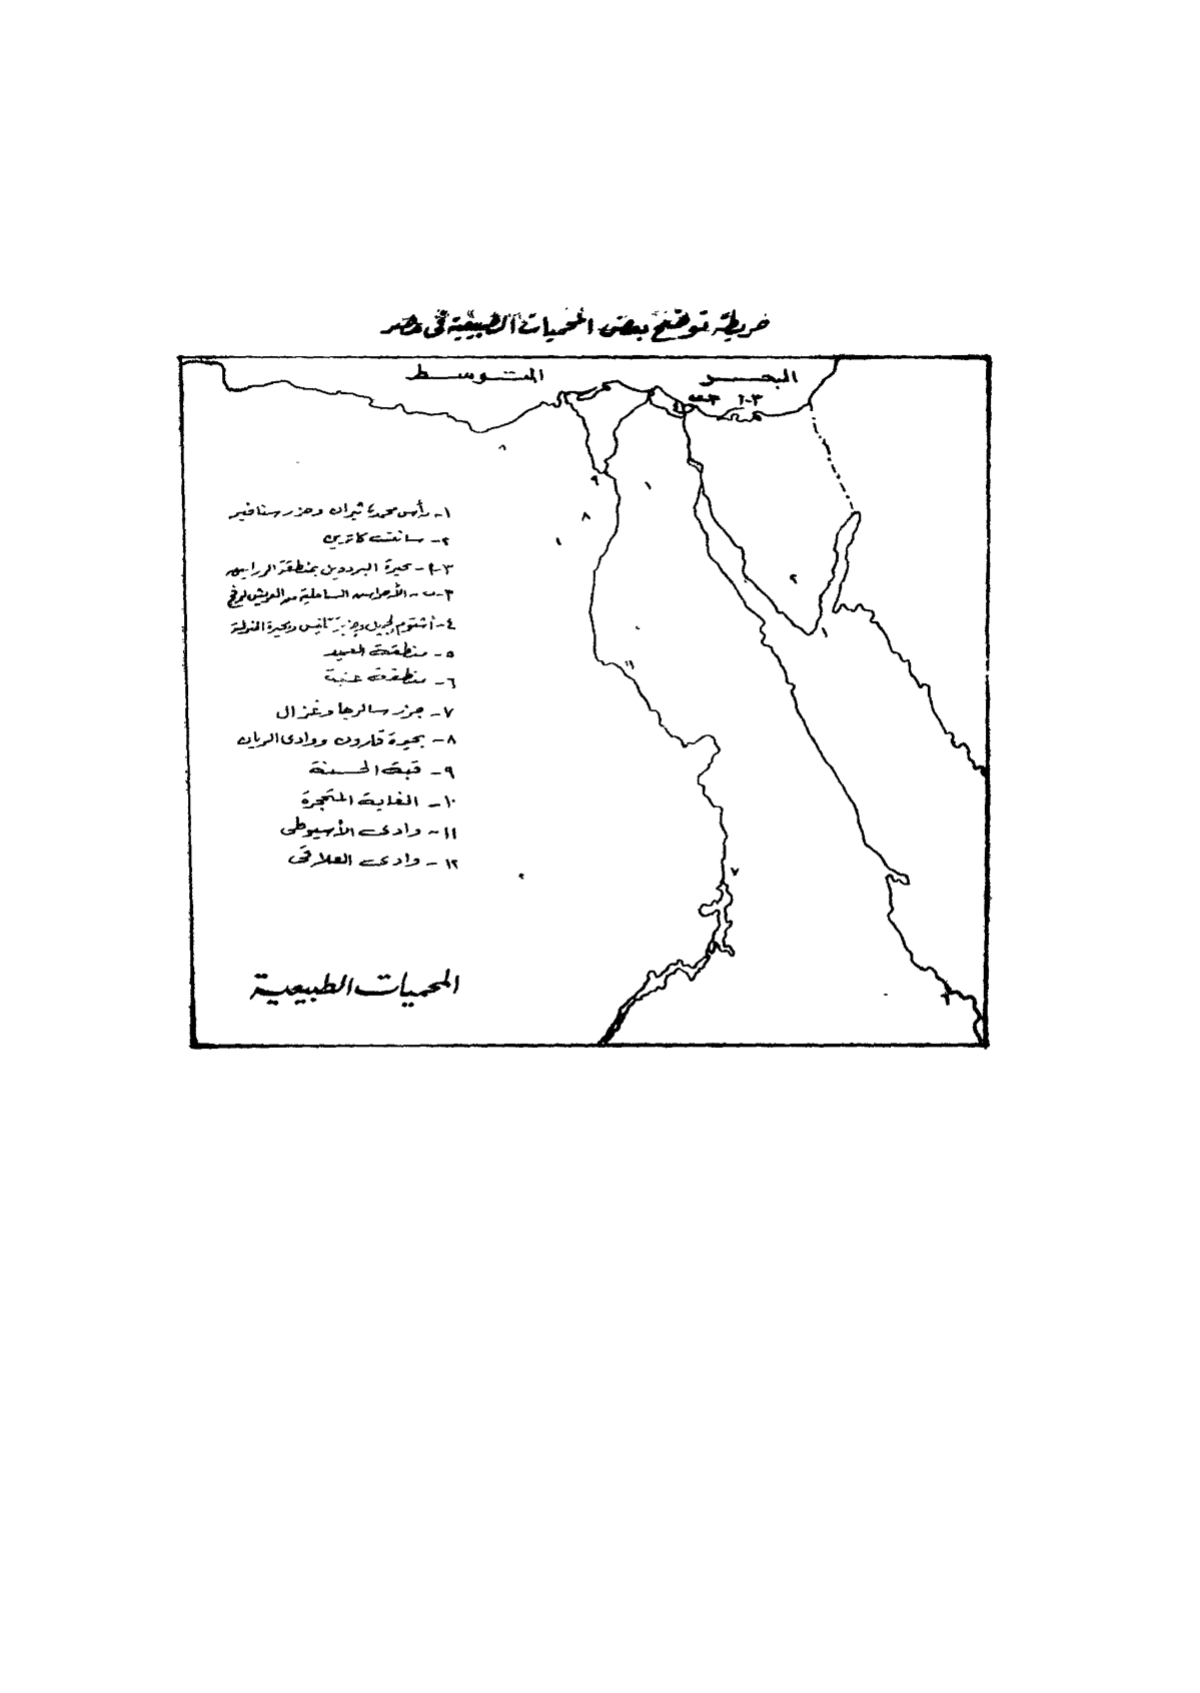 خريطة توضح بعض المحميات الطبيعية فى مصر
البحر المتوسط
٣-أ ٣-ب
٤
٨
٩ ١
٨
١
٢
١
١١
١- رأس محمد، تيران وجزر سنافير
٢- سانت كاترين
٣-أ- بحيرة البردويل بمنطقة الزرانيق
٣-ب- الأحراش الساحلية من العريش لرفح
٤- أشتوم الجميل وجزيرة تانيس وبحيرة المنزلة
٥- منطقة العميد
٦- منطقة علبة
٧- جزر سالوجا وغزال
٨- بحيرة قارون ووادى الريان
٩- قبة الحسنة
١٠- الغابة المتحجرة
١١- وادى الأسيوطى
١٢- وادى العلاقى
٧
المحميات الطبيعية
٦